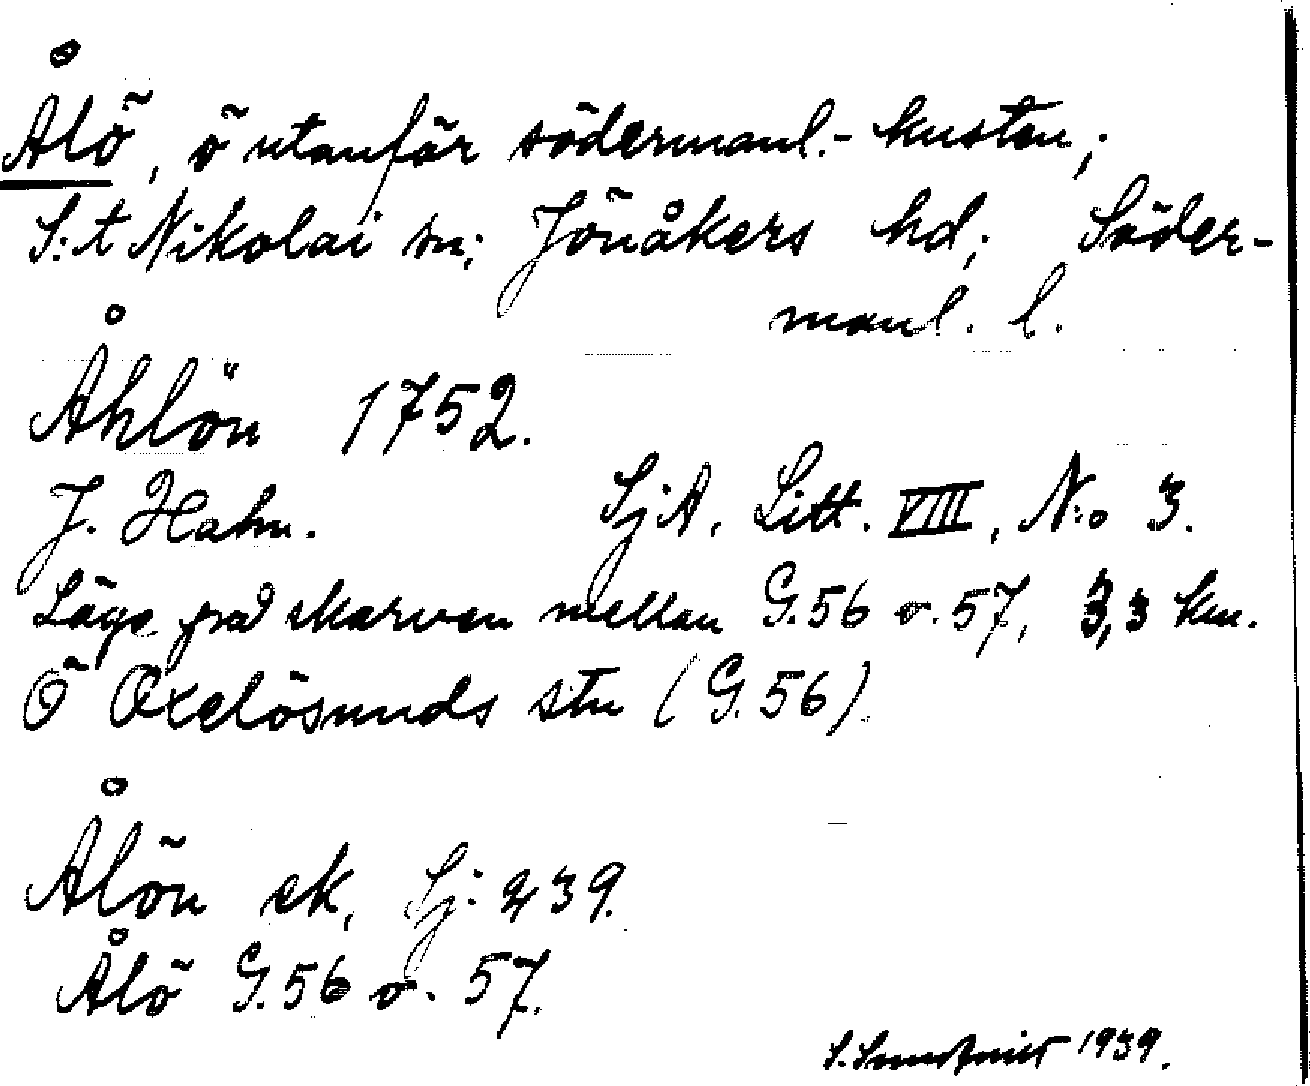 Ålö, ö utanför södermanl.- kusten;
S:t Nikolai sn; Jönåkers hd; Söder-
manl. l.
Åhlön 1752.
J. Hahn. SjA, Litt. VIII, N:o 3.
Läge på skarven mellan G.56 o. 57, 3,3 km.
Ö Oxelösunds stn (G.56).
Ålön ek, Sj: 239.
Ålö G.56 o. 57.
1939.